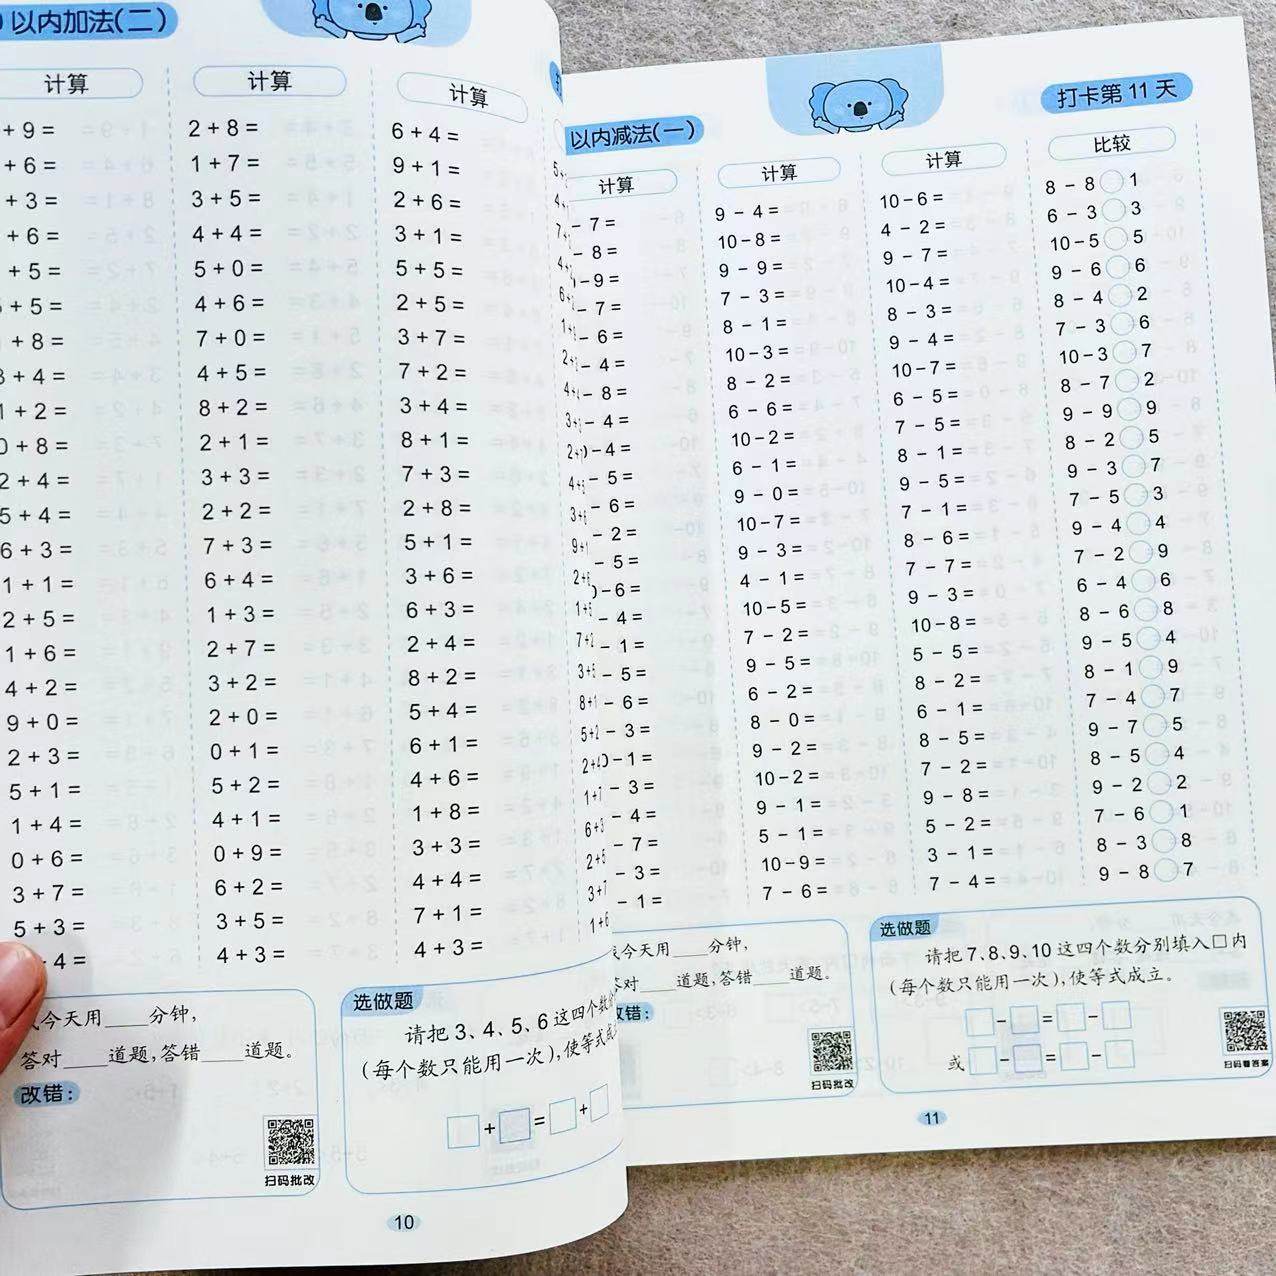 以内加法(二)
计算
+ 9 =
+ 6 =
+ 3 =
+ 6 =
+ 5 =
+ 5 =
+ 8 =
3 + 4 =
1 + 2 =
0 + 8 =
2 + 4 =
5 + 4 =
6 + 3 =
1 + 1 =
2 + 5 =
1 + 6 =
4 + 2 =
9 + 0 =
2 + 3 =
5 + 1 =
1 + 4 =
0 + 6 =
3 + 7 =
5 + 3 =
4 =
计算
2 + 8 =
1 + 7 =
3 + 5 =
4 + 4 =
5 + 0 =
4 + 6 =
7 + 0 =
4 + 5 =
8 + 2 =
2 + 1 =
3 + 3 =
2 + 2 =
7 + 3 =
6 + 4 =
1 + 3 =
2 + 7 =
3 + 2 =
2 + 0 =
0 + 1 =
5 + 2 =
4 + 1 =
0 + 9 =
6 + 2 =
3 + 5 =
4 + 3 =
计算
6 + 4 =
9 + 1 =
2 + 6 =
3 + 1 =
5 + 5 =
2 + 5 =
3 + 7 =
7 + 2 =
3 + 4 =
8 + 1 =
7 + 3 =
2 + 8 =
5 + 1 =
3 + 6 =
6 + 3 =
2 + 4 =
8 + 2 =
5 + 4 =
6 + 1 =
4 + 6 =
1 + 8 =
3 + 3 =
4 + 4 =
7 + 1 =
4 + 3 =
今天用____分钟，
答对____道题，答错____道题。
改错：
扫码批改
选做题
请把 3、4、5、6 这四个数
(每个数只能用一次)，使等式成
□+□=□+□
10
以内减法(一)
打卡第 11 天
计算
- 7 =
- 8 =
- 9 =
- 7 =
- 6 =
- 4 =
- 8 =
- 4 =
- 4 =
- 5 =
- 6 =
- 2 =
- 5 =
- 6 =
- 4 =
- 1 =
- 5 =
- 6 =
- 3 =
- 1 =
- 3 =
- 4 =
- 7 =
- 3 =
- 1 =
计算
9 - 4 =
10 - 8 =
9 - 9 =
7 - 3 =
8 - 1 =
10 - 3 =
8 - 2 =
6 - 6 =
10 - 2 =
6 - 1 =
9 - 0 =
10 - 7 =
9 - 3 =
4 - 1 =
10 - 5 =
7 - 2 =
9 - 5 =
6 - 2 =
8 - 0 =
9 - 2 =
10 - 2 =
9 - 1 =
5 - 1 =
10 - 9 =
7 - 6 =
计算
10 - 6 =
4 - 2 =
9 - 7 =
10 - 4 =
8 - 3 =
9 - 4 =
10 - 7 =
6 - 5 =
7 - 5 =
8 - 1 =
9 - 5 =
7 - 1 =
8 - 6 =
7 - 7 =
9 - 3 =
10 - 8 =
5 - 5 =
8 - 2 =
6 - 1 =
8 - 5 =
7 - 2 =
9 - 8 =
5 - 2 =
3 - 1 =
7 - 4 =
比较
8 - 8 ○ 1
6 - 3 ○ 3
10 - 5 ○ 5
9 - 6 ○ 6
8 - 4 ○ 2
7 - 3 ○ 6
10 - 3 ○ 7
8 - 7 ○ 2
9 - 9 ○ 9
8 - 2 ○ 5
9 - 3 ○ 7
7 - 5 ○ 3
9 - 4 ○ 4
7 - 2 ○ 9
6 - 4 ○ 6
8 - 6 ○ 8
9 - 5 ○ 4
8 - 1 ○ 9
7 - 4 ○ 7
9 - 7 ○ 5
8 - 5 ○ 4
9 - 2 ○ 2
7 - 6 ○ 1
8 - 3 ○ 8
9 - 8 ○ 7
今天用____分钟，
对____道题，答错____道题。
改错：
扫码批改
选做题
请把 7、8、9、10 这四个数分别填入□内
(每个数只能用一次)，使等式成立。
□-□=□-□
或□-□=□-□
扫码看答案
11